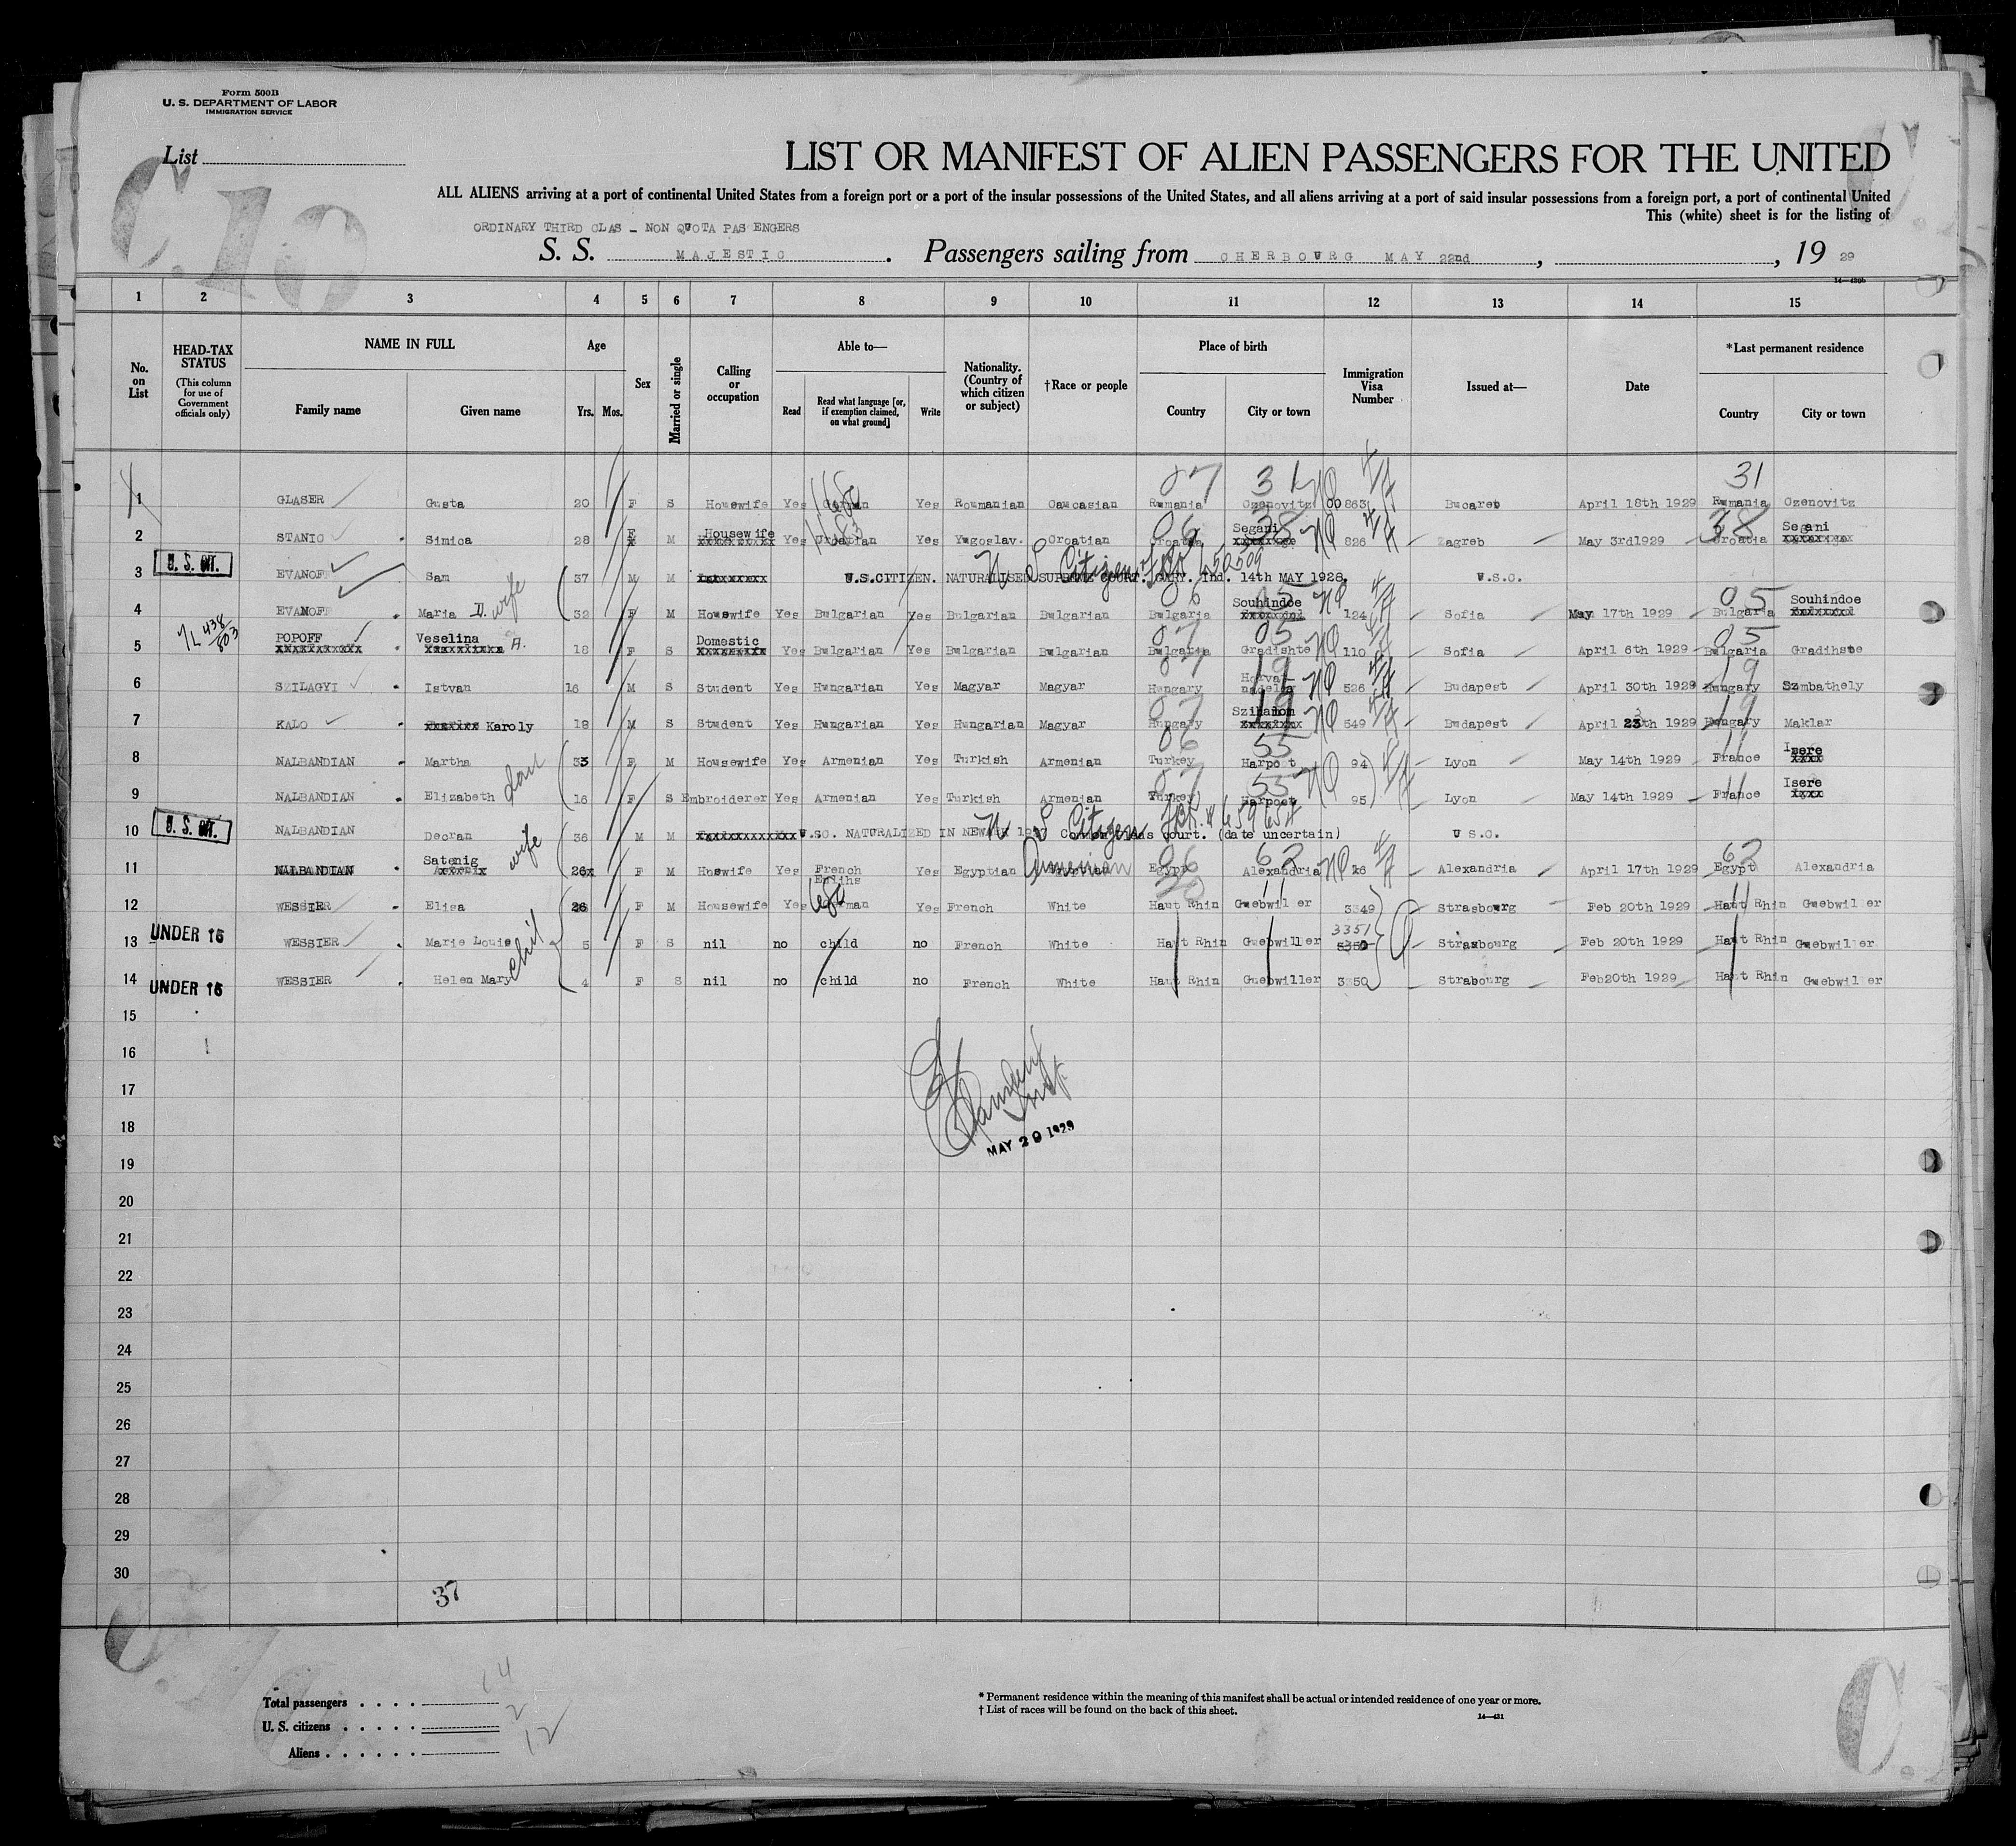 Form 500B
U. S. DEPARTMENT OF LABOR
IMMIGRATION SERVICE
List
LIST OR MANIFEST OF ALIEN PASSENGERS FOR THE UNITED
ALL ALIENS arriving at a port of continental United States from a foreign port or a port of the insular possessions of the United States, and all aliens arriving at a port of said insular possessions from a foreign port, a port of continental United
This (white) sheet is for the listing of
ORDINARY THIRD CLAS - NON QUOTA PAS ENGERS
S. S. MAJESTIC. Passengers sailing from CHERBOURG MAY 22nd, , 19 29
1 2 3 4 5 6 7 8 9 10 11 12 13 14 15
No. on List
HEAD-TAX STATUS (This column for use of Government officials only)
NAME IN FULL
Family name Given name
Age Yrs. Mos.
Sex
Married or single
Calling or occupation
Able to—
Read Read what language [or, if exemption claimed, on what ground] Write
Nationality. (Country of which citizen or subject)
†Race or people
Place of birth
Country City or town
Immigration Visa Number
Issued at—
Date
*Last permanent residence
Country City or town
07 31 NQ 31
1 GLASER Gusta 20 F S Housewife Yes German Yes Roumanian Caucasian Rumania Ozenovitz 00863 Bucarest April 18th 1929 Rumania Ozenovitz
2 STANIC Simica 28 F M Housewife Yes Croatian Yes Yugoslav. Croatian Croatia Segani 826 Zagreb May 3rd1929 Croatia Segani
U. S. CIT.
3 EVANOFF Sam 37 M M U.S.CITIZEN. NATURALISED SUPREME COURT. GARY. Ind. 14th MAY 1928. U.S.C.
4 EVANOFF Maria D. wife 32 F M Housewife Yes Bulgarian Yes Bulgarian Bulgarian Bulgaria Souhindoe 124 Sofia May 17th 1929 Bulgaria Souhindoe
5 POPOFF Veselina A. 18 F S Domestic Yes Bulgarian Yes Bulgarian Bulgarian Bulgaria Gradishte 110 Sofia April 6th 1929 Bulgaria Gradihste
6 SZILAGYI Istvan 16 M S Student Yes Hungarian Yes Magyar Magyar Hungary 526 Budapest April 30th 1929 Hungary Szmbathely
7 KALO Karoly 18 M S Student Yes Hungarian Yes Hungarian Magyar Hungary Szihalom 549 Budapest April 23th 1929 Hungary Maklar
8 NALBANDIAN Martha 33 F M Housewife Yes Armenian Yes Turkish Armenian Turkey Harpoot 94 Lyon May 14th 1929 France Isere
9 NALBANDIAN Elizabeth dau 16 F S Embroiderer Yes Armenian Yes Turkish Armenian Turkey Harpoot 95 Lyon May 14th 1929 France Isere
U. S. CIT.
10 NALBANDIAN Decran 36 M M U.SC. NATURALIZED IN NEWARK 1927 Common pleas court. (date uncertain) U S.C.
11 NALBANDIAN Satenig wife 26 F M Huswife Yes French Yes Egyptian Armenian Egypt Alexandria 26 Alexandria April 17th 1929 Egypt Alexandria
12 WESSIER Elisa 26 F M Housewife Yes German Yes French White Haut Rhin Guebwil er 3349 Strasbourg Feb 20th 1929 Haut Rhin Guebwiller
UNDER 16
13 WESSIER Marie Louis 5 F S nil no child no French White Haut Rhin Guebwiller 3351 Strasbourg Feb 20th 1929 Haut Rhin Guebwiller
UNDER 16
14 WESSIER Helen Mary 4 F S nil no child no French White Haut Rhin Guebwiller 3350 Strabourg Feb20th 1929 Haut Rhin Guebwiller
child
15
16
17
18
MAY 29 1929
19
20
21
22
23
24
25
26
27
28
29
30
37
Total passengers 14
U. S. citizens 2
Aliens 12
* Permanent residence within the meaning of this manifest shall be actual or intended residence of one year or more.
† List of races will be found on the back of this sheet.
14—431